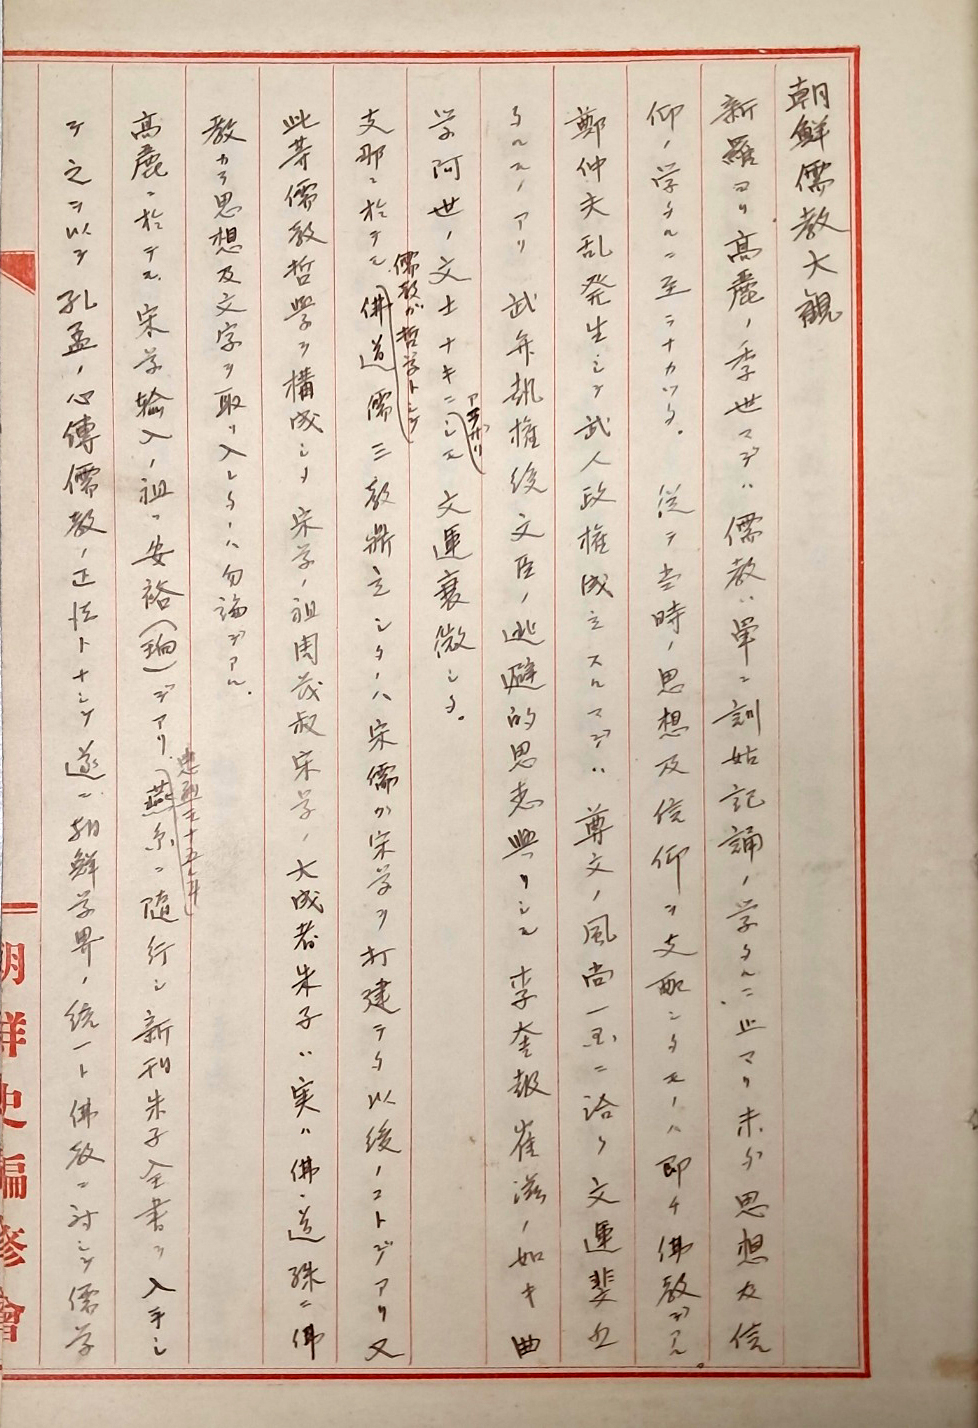 朝鮮儒教大観
新羅ヨリ高麗ノ季世マデハ儒教ハ単ニ訓詁記誦ノ学タルニ止マリ未ダ思想及信
仰ノ学タルニ至ラナカツタ。従テ当時ノ思想及信仰ヲ支配シタモノハ即チ佛教デアル。
鄭仲夫乱発生シテ武人政権成立スルマデハ尊文ノ風尚一国ニ洽ク文運斐然
タルモノアリ 武弁執権後文臣ノ逃避的思想興リシモ李奎報崔滋ノ如キ曲
学阿世ノ文士ナキニシモアラザリ文運衰微シタ。
支那ニ於テモ佛道儒三教鼎立シタノハ宋儒カ宋学ヲ打建テタ以後ノコトデアリ又
儒教ガ哲学トシテ
此等儒教哲学ヲ構成シタ宋学ノ祖周茂叔宋学ノ大成者朱子ハ実ハ佛道殊ニ佛
教カラ思想及文字ヲ取リ入レタノハ勿論デアル。
高麗ニ於テモ宋学輸入ノ祖ハ安裕(珦)デアリ燕京ニ随行シ新刊朱子全書ヲ入手シ
忠烈王十五年
テ之ヲ以テ孔孟ノ心傳儒教ノ正法トナシテ遂ニ朝鮮学界ノ統一ト佛教ニ対シテ儒学
朝鮮史編修會